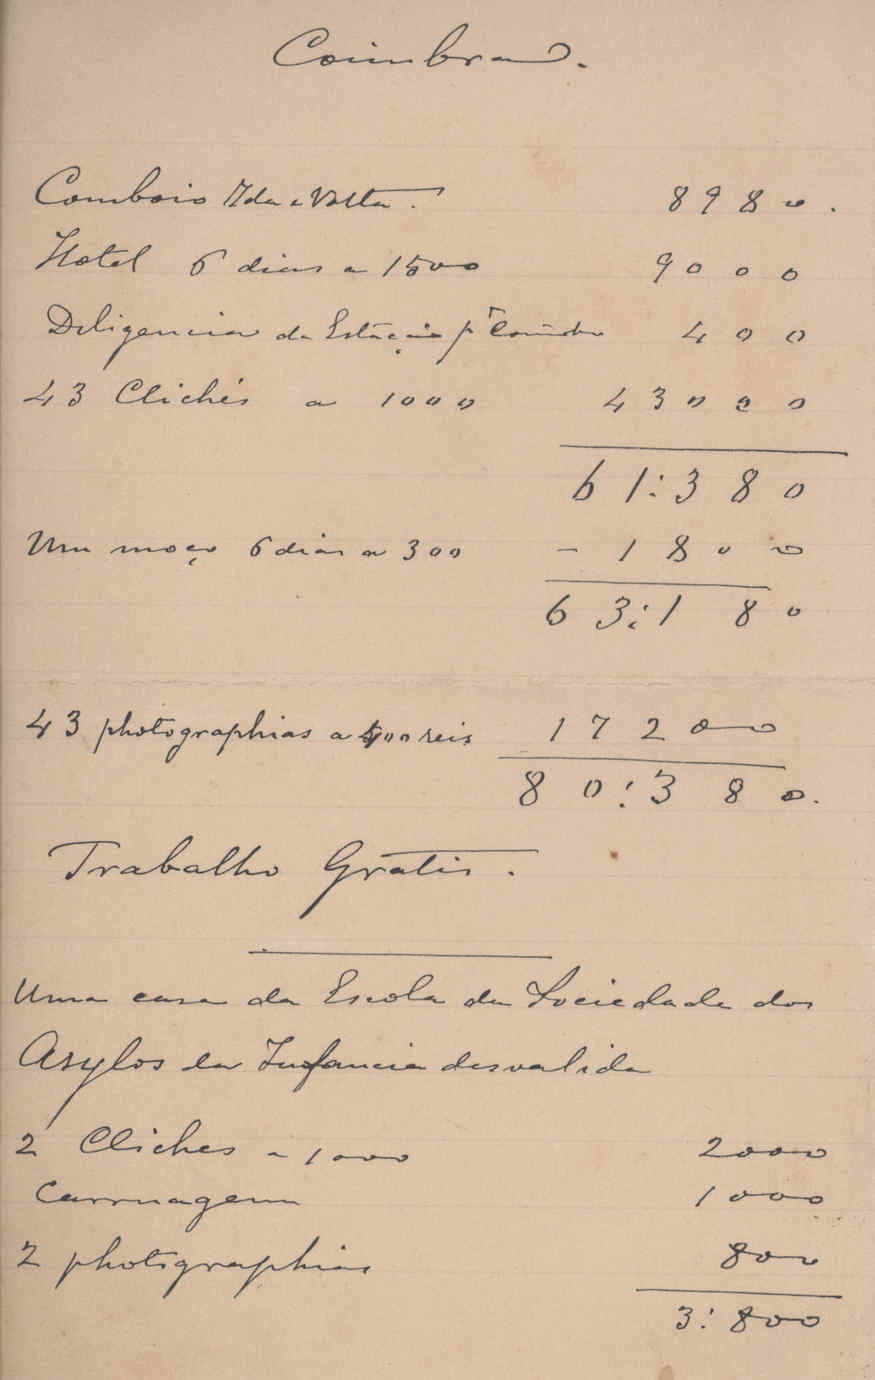 Coimbra.
Comboio Ida e Volta. 8980.
Hotel 6 dias a 1500 9000
Diligencia da Estação pª Coimbra 400
43 Clichés a 1000 43000
61:380
Um moço 6 dias a 300 - 1800
63:180
43 photographias a 400 reis 17200
80:380.
Trabalho Gratis.
Uma casa da Escola da Sociedade dos
Asylos da Infancia desvalida
2 Cliches a 1000 2000
Carruagem 1000
2 photographias 800
3:800